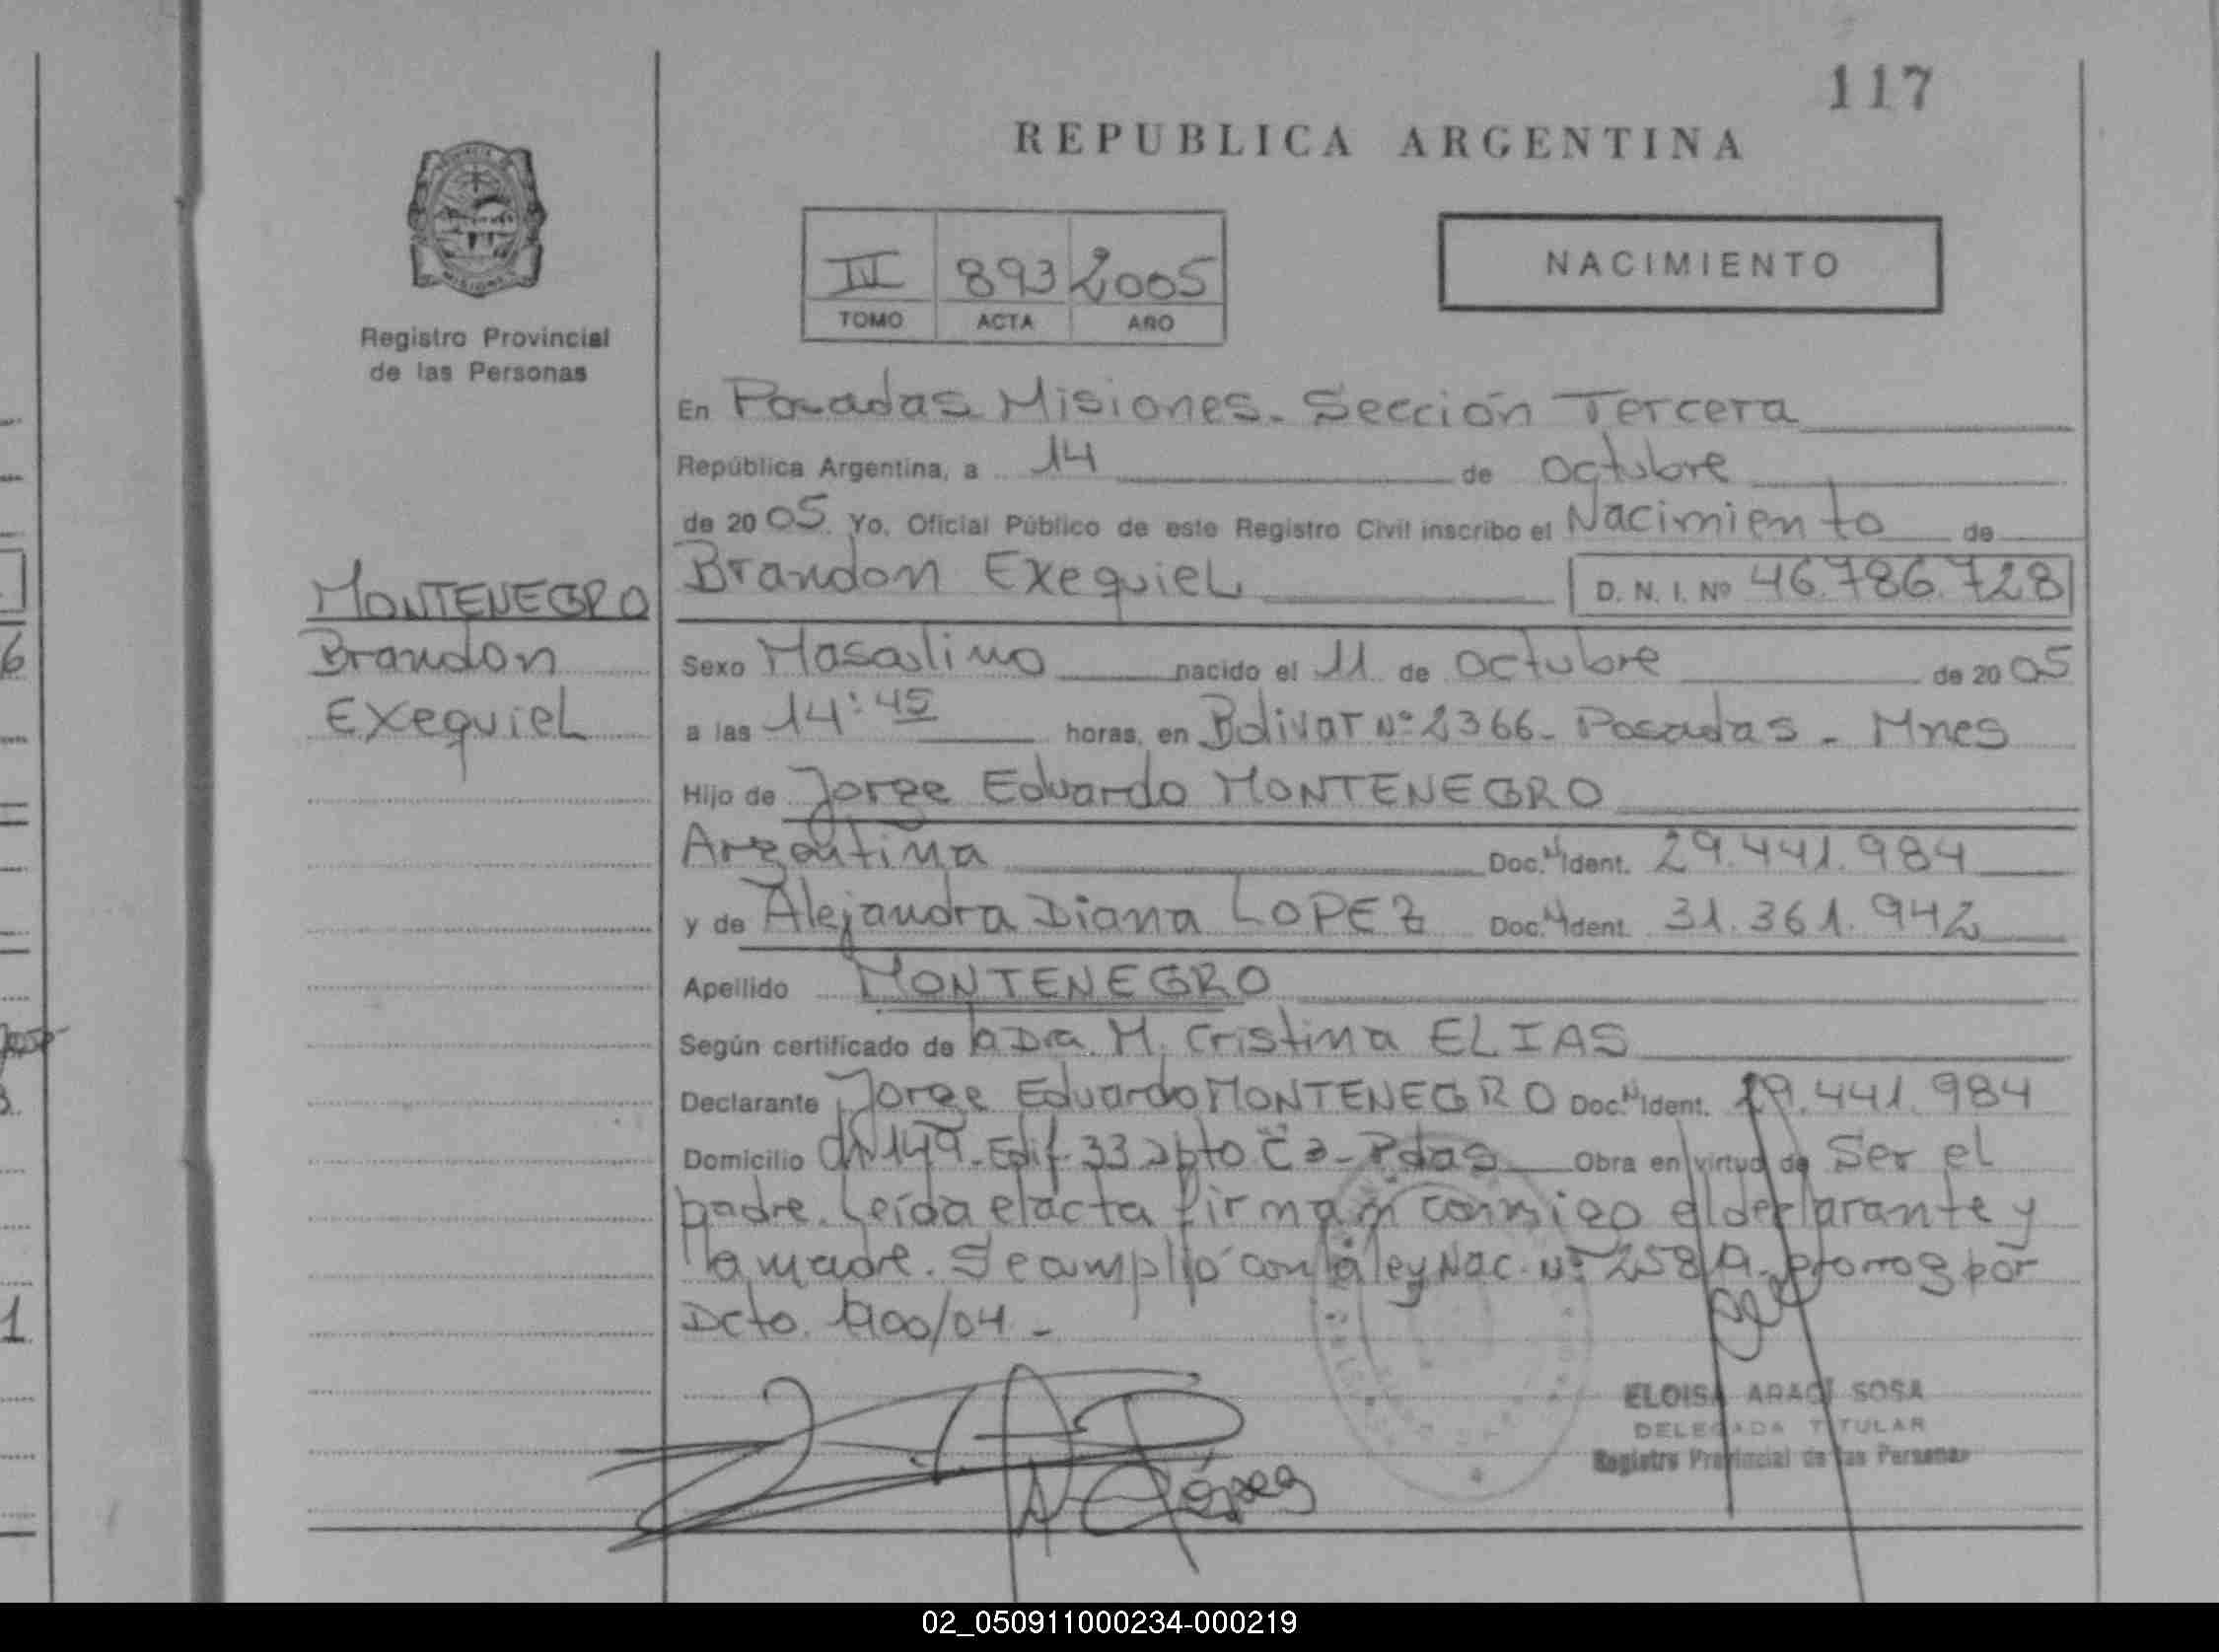 117
REPUBLICA ARGENTINA
Registro Provincial
de las Personas
III 893 2005
TOMO ACTA AÑO
NACIMIENTO
En Posadas Misiones. Sección Tercera
República Argentina, a 14 de octubre
de 2005. Yo, Oficial Público de este Registro Civil inscribo el Nacimiento de
MONTENEGRO
Brandon
Exequiel
Brandon Exequiel D. N. I. Nº 46.786.728
Sexo Masculino nacido el 11 de octubre de 2005
a las 14:45 horas, en Bolivar Nº 2366 - Posadas - Mnes
Hijo de Jorge Eduardo MONTENEGRO
Argentina Doc. N Ident. 29.441.984
y de Alejandra Diana LOPEZ Doc. N Ident. 31.361.942
Apellido MONTENEGRO
Según certificado de la Dra. M. Cristina ELIAS
Declarante Jorge Eduardo MONTENEGRO Doc. N Ident. 29.441.984
Domicilio ch 149 - Edif. 33 dpto - Pdas Obra en virtud de Ser el
padre. Leída el acta firman conmigo el declarante y
la madre. Se cumplió con la ley Nac. Nº 25819. prorrog por
Dcto. 1900/04 -
López
ELOISA ARACI SOSA
DELEGADA TITULAR
Registro Provincial de las Personas
6
1
02_050911000234-000219